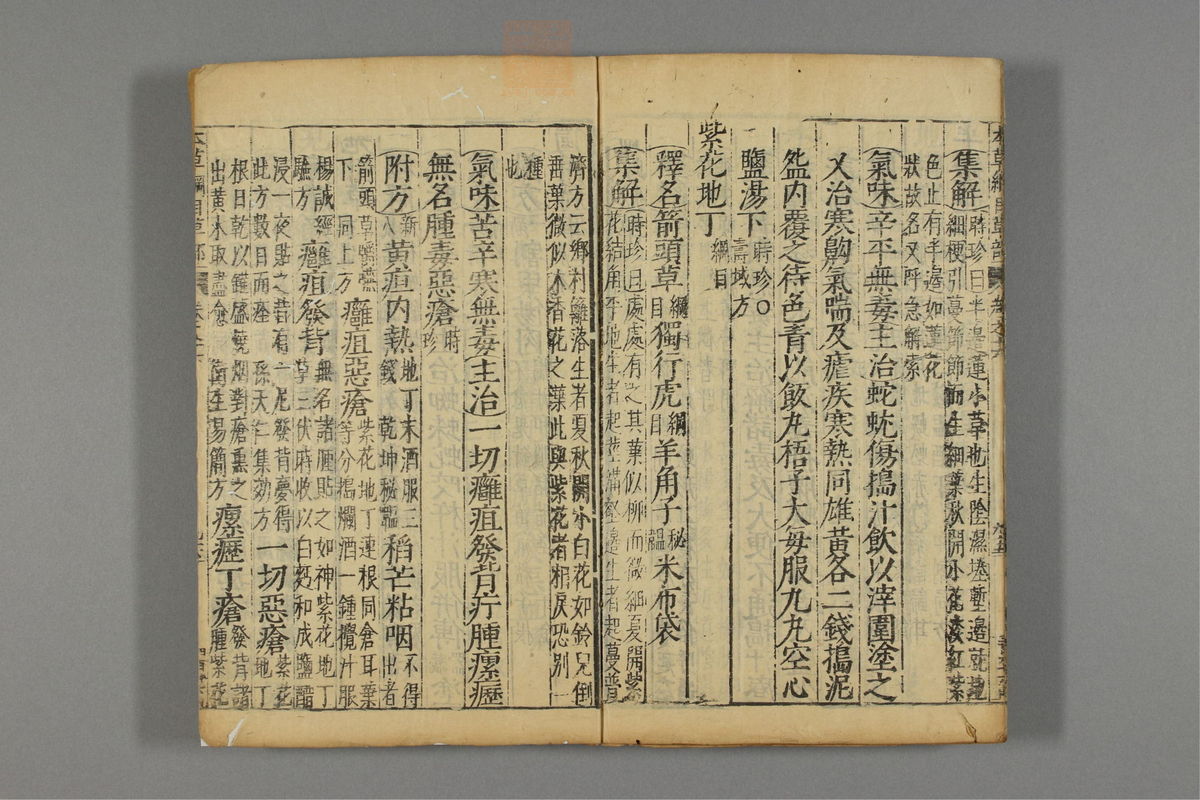 集解時珍曰半邊蓮小草也生陰濕塍塹邊就地
細梗引蔓節節而生細葉秋開小花淡紅紫
色止有半邊如蓮花
狀故名又呼急解索
氣味辛平無毒主治蛇虺傷搗汁飲以滓圍塗之
又治寒齁氣喘及瘧疾寒熱同雄黃各二錢搗泥
盌內覆之待色青以飯丸梧子大每服九丸空心
鹽湯下時珍○
壽域方
紫花地丁綱目
釋名箭頭草綱目獨行虎綱目羊角子秘韞米布袋
集解時珍曰處處有之其葉似柳而微細夏開紫
花結角平地生者起莖溝壑邊生者起蔓普
濟方云鄉村籬落生者夏秋開小白花如鈴兒倒
垂葉微似木香花之葉此與紫花者相戾恐別一
種
也
氣味苦辛寒無毒主治一切癰疽發背疔腫瘰癧
無名腫毒惡瘡時珍
附方新八黃疸內熱地丁末酒服三
錢乾坤秘韞稻芒粘咽不得
出者
箭頭草嚼嚥
下同上方癰疽惡瘡紫花地丁連根同倉耳葉
等分搗爛酒一鍾攪汁服
楊誠經
驗方癰疽發背無名諸腫貼之如神紫花地丁
草三伏時收以白麪和成鹽醋
浸一夜貼之昔有一尼發背夢得
此方數日而痊孫天仁集效方一切惡瘡紫花
地丁
根日乾以罐盛燒烟對瘡熏之
出黃水取盡愈衛生易簡方瘰癧丁瘡發背諸
腫紫花